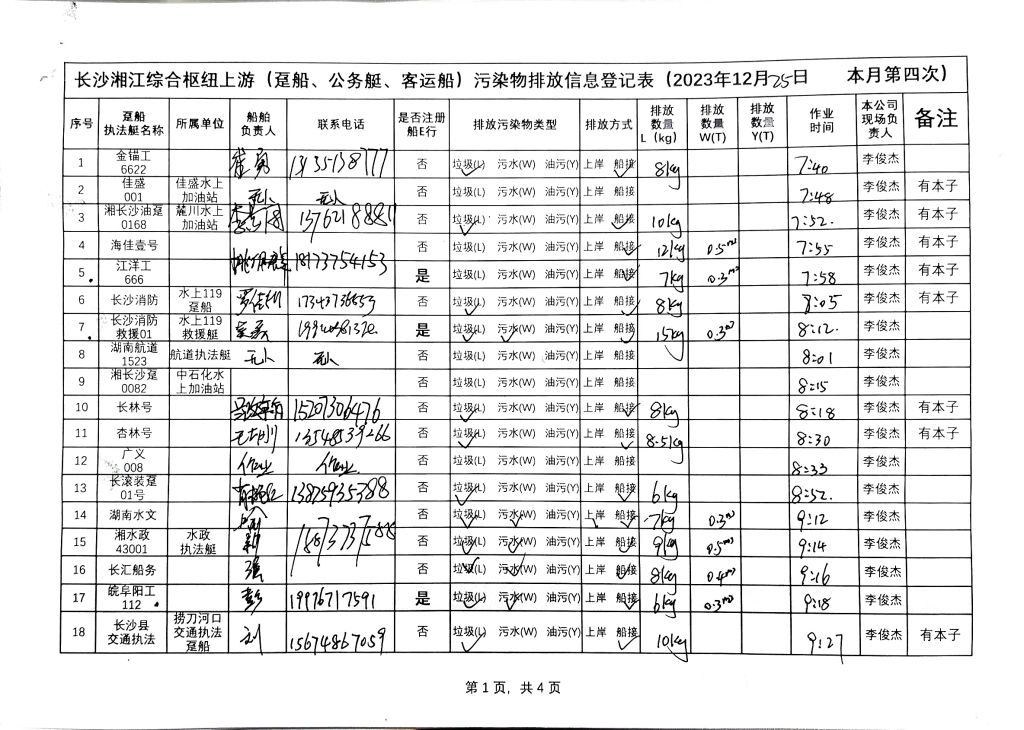 长沙湘江综合枢纽上游（趸船、公务艇、客运船）污染物排放信息登记表（2023年12月25日 本月第四次）
序号 趸船执法艇名称 所属单位 船舶负责人 联系电话 是否注册船E行 排放污染物类型 排放方式 排放数量L（kg） 排放数量W(T) 排放数量Y(T) 作业时间 本公司现场负责人 备注
1 金锚工6622 否 垃圾(L) 污水(W) 油污(Y) 上岸 船接 8kg 7:40 李俊杰
2 佳盛001 佳盛水上加油站 无人 无人 否 垃圾(L) 污水(W) 油污(Y) 上岸 船接 7:48 李俊杰 有本子
3 湘长沙油趸0168 麓川水上加油站 否 垃圾(L) 污水(W) 油污(Y) 上岸 船接 10kg 7:52. 李俊杰 有本子
4 海佳壹号 否 垃圾(L) 污水(W) 油污(Y) 上岸 船接 12kg 0.5m³ 7:55 李俊杰 有本子
5 江洋工666 18173754153 是 垃圾(L) 污水(W) 油污(Y) 上岸 船接 7kg 0.3m³ 7:58 李俊杰 有本子
6 长沙消防 水上119趸船 否 垃圾(L) 污水(W) 油污(Y) 上岸 船接 8kg 8:05 李俊杰 有本子
7 长沙消防救援01 水上119救援艇 是 垃圾(L) 污水(W) 油污(Y) 上岸 船接 15kg 0.3m³ 8:12. 李俊杰
8 湖南航道1523 航道执法艇 无人 无人 否 垃圾(L) 污水(W) 油污(Y) 上岸 船接 8:01 李俊杰
9 湘长沙趸0082 中石化水上加油站 否 垃圾(L) 污水(W) 油污(Y) 上岸 船接 8:15 李俊杰
10 长林号 15207306476 否 垃圾(L) 污水(W) 油污(Y) 上岸 船接 8kg 8:18 李俊杰 有本子
11 杏林号 13548539266 否 垃圾(L) 污水(W) 油污(Y) 上岸 船接 8.5kg 8:30 李俊杰 有本子
12 广义008 作业 作业 否 垃圾(L) 污水(W) 油污(Y) 上岸 船接 8:33 李俊杰
13 长滚装趸01号 13875935388 否 垃圾(L) 污水(W) 油污(Y) 上岸 船接 6kg 8:52. 李俊杰
14 湖南水文 否 垃圾(L) 污水(W) 油污(Y) 上岸 船接 7kg 0.3m³ 9:12 李俊杰
15 湘水政43001 水政执法艇 否 垃圾(L) 污水(W) 油污(Y) 上岸 船接 9kg 0.5m³ 9:14 李俊杰
16 长汇船务 强 否 垃圾(L) 污水(W) 油污(Y) 上岸 船接 8kg 0.4m³ 9:16 李俊杰
17 皖阜阳工112 彭 19976717591 是 垃圾(L) 污水(W) 油污(Y) 上岸 船接 6kg 0.3m³ 9:18 李俊杰
18 长沙县交通执法 捞刀河口交通执法趸船 刘 15674867059 否 垃圾(L) 污水(W) 油污(Y) 上岸 船接 10kg 9:27 李俊杰 有本子
第1页，共4页